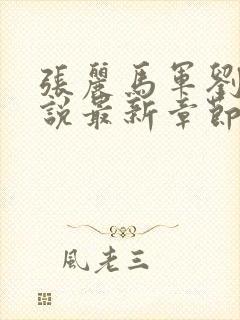 張麗馬軍劉
說最新章節
風老三